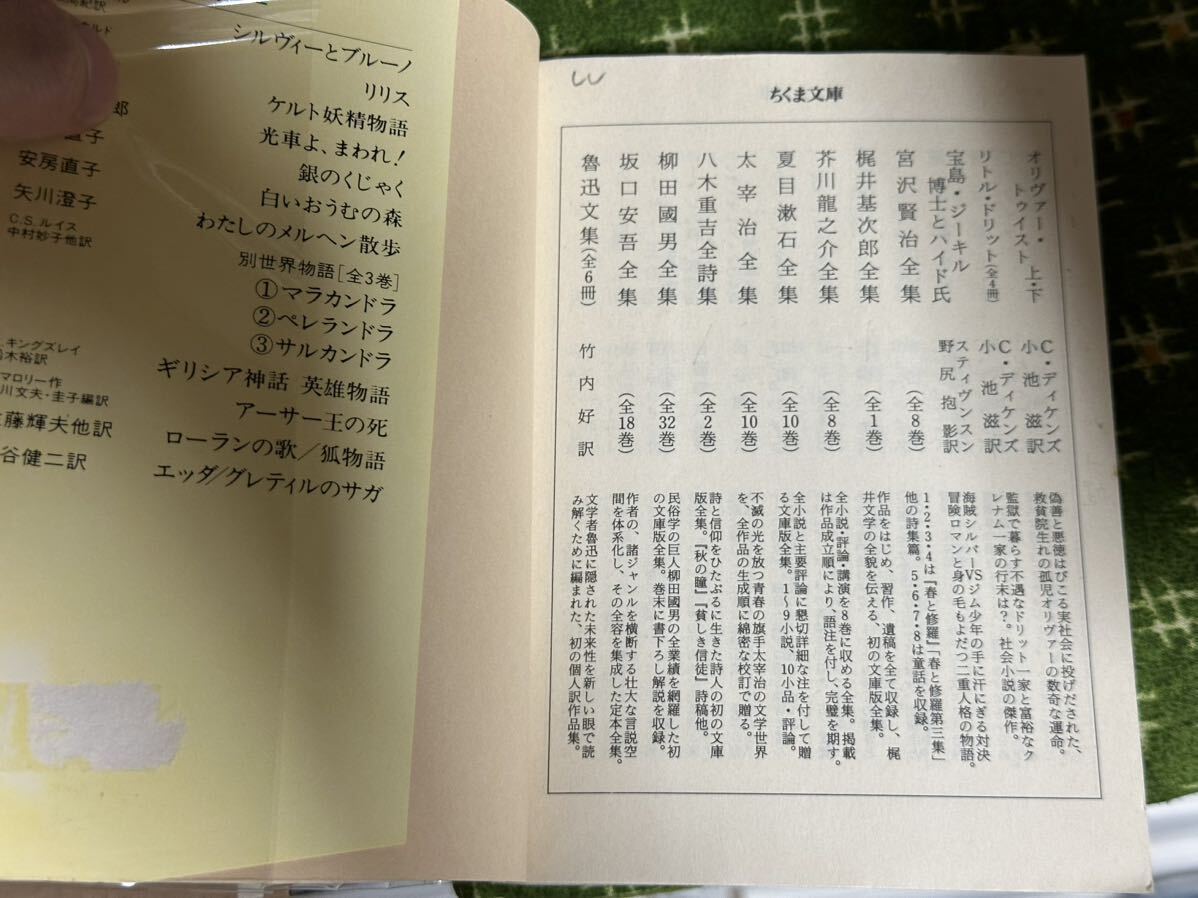 シルヴィーとブルーノ
リリス
ケルト妖精物語
光車よ、まわれ!
銀のくじゃく
白いおうむの森
わたしのメルヘン散歩
別世界物語[全3巻]
①マラカンドラ
②ペレランドラ
③サルカンドラ
ギリシア神話 英雄物語
アーサー王の死
ローランの歌/狐物語
エッダ/グレティルのサガ
郎
直子
安房直子
矢川澄子
C.S.ルイス
中村妙子他訳
キングズレイ
木裕訳
マロリー作
川文夫・圭子編訳
藤輝夫他訳
谷健二訳
ちくま文庫
オリヴァー・トゥイスト 上・下
C・ディケンズ
小池滋訳
偽善と悪徳はびこる実社会に投げだされた、
救貧院生れの孤児オリヴァーの数奇な運命。
リトル・ドリット(全4冊)
C・ディケンズ
小池滋訳
監獄で暮らす不遇なドリット一家と富裕なク
レナム一家の行末は?。社会小説の傑作。
宝島・ジーキル
博士とハイド氏
スティヴンスン
野尻抱影訳
海賊シルバーVSジム少年の手に汗にぎる対決
冒険ロマンと身の毛もよだつ二重人格の物語。
宮沢賢治全集
(全8巻)
1・2・3・4は『春と修羅』「春と修羅第三集」
他の詩集篇。5・6・7・8は童話を収録。
梶井基次郎全集
(全1巻)
作品をはじめ、習作、遺稿を全て収録し、梶
井文学の全貌を伝える、初の文庫版全集。
芥川龍之介全集
(全8巻)
全小説・評論・講演を8巻に収める全集。掲載
は作品成立順により、語注を付し、完璧を期す。
夏目漱石全集
(全10巻)
全小説と主要評論に懇切詳細な注を付して贈
る文庫版全集。1〜9小説、10小品・評論。
太宰治全集
(全10巻)
不滅の光を放つ青春の旗手太宰治の文学世界
を、全作品の生成順に綿密な校訂で贈る。
八木重吉全詩集
(全2巻)
詩と信仰をひたぶるに生きた詩人の初の文庫
版全集。『秋の瞳』『貧しき信徒』詩稿他。
柳田國男全集
(全32巻)
民俗学の巨人柳田國男の全業績を網羅した初
の文庫版全集。巻末に書下ろし解説を収録。
坂口安吾全集
(全18巻)
作者の、諸ジャンルを横断する壮大な言説空
間を体系化し、その全容を集成した定本全集。
魯迅文集(全6冊)
竹内好訳
文学者魯迅に隠された未来性を新しい眼で読
み解くために編まれた、初の個人訳作品集。